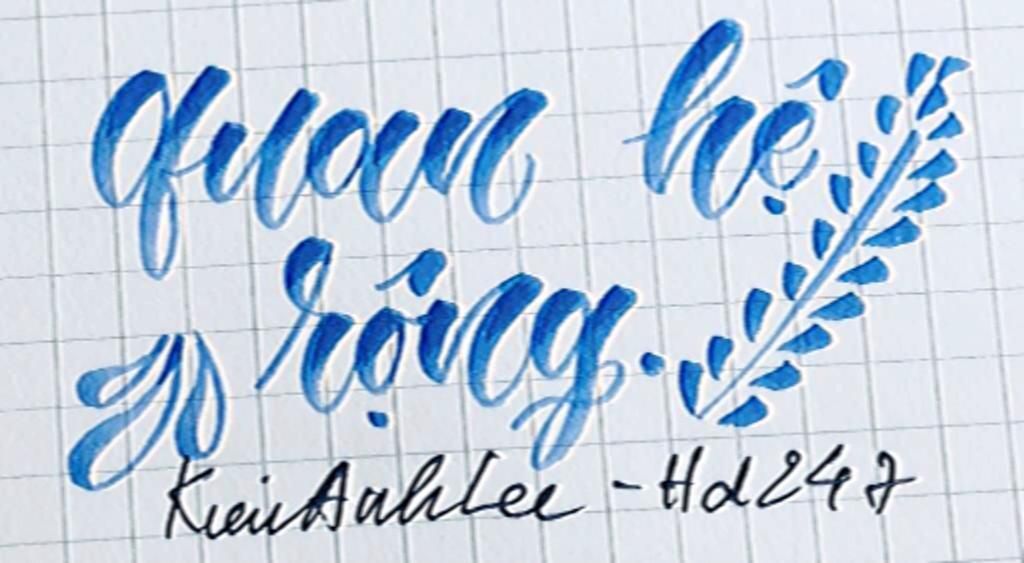 quan hệ
rộng.
KieuAnhLee - Hd247